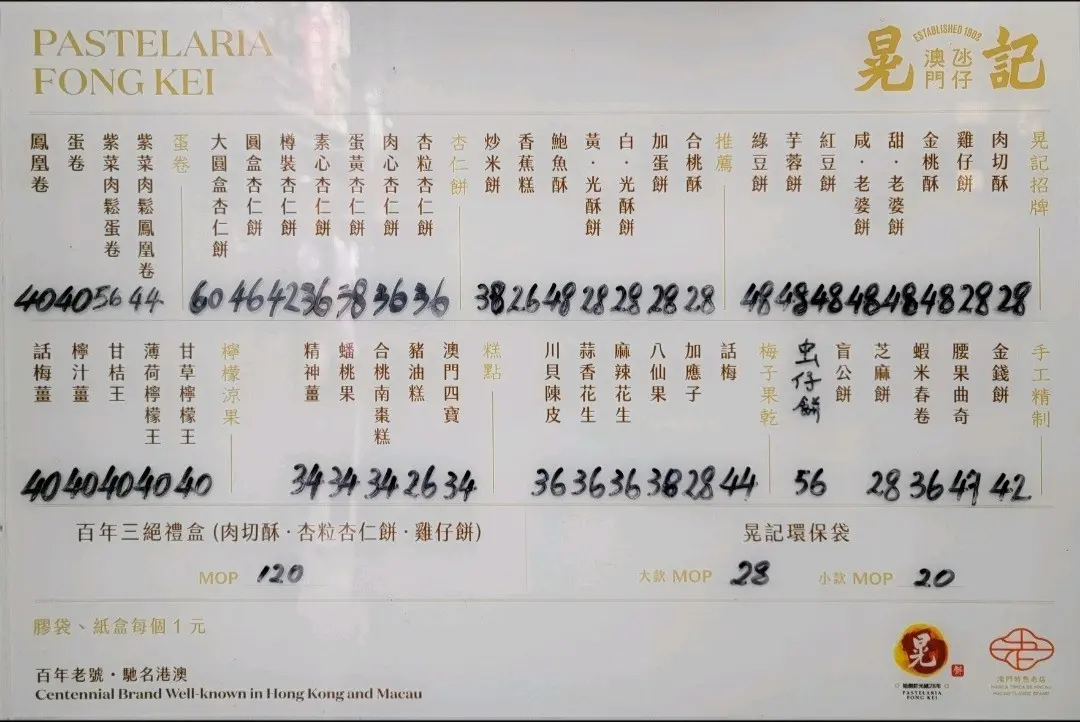 PASTELARIA
FONG KEI
晃記
ESTABLISHED 1902
澳門
氹仔
晃記招牌
肉切酥 28
雞仔餅 28
金桃酥 48
甜·老婆餅 48
咸·老婆餅 48
紅豆餅 48
芋蓉餅 48
綠豆餅 48
推薦
合桃酥 28
加蛋餅 28
白·光酥餅 28
黃·光酥餅 28
鮑魚酥 48
香蕉糕 26
炒米餅 38
杏仁餅
杏粒杏仁餅 36
肉心杏仁餅 36
蛋黃杏仁餅 38
素心杏仁餅 36
樽裝杏仁餅 42
圓盒杏仁餅 46
大圓盒杏仁餅 60
蛋卷
紫菜肉鬆鳳凰卷 44
紫菜肉鬆蛋卷 56
蛋卷 40
鳳凰卷 40
手工精制
金錢餅 42
腰果曲奇 47
蝦米春卷 36
芝麻餅 28
盲公餅
虫仔餅 56
梅子果乾
話梅 44
加應子 28
八仙果 38
麻辣花生 36
蒜香花生 36
川貝陳皮 36
糕點
澳門四寶 34
豬油糕 26
合桃南棗糕 34
蟠桃果 34
精神薑 34
檸檬涼果
甘草檸檬王 40
薄荷檸檬王 40
甘桔王 40
檸汁薑 40
話梅薑 40
百年三絕禮盒 (肉切酥·杏粒杏仁餅·雞仔餅)
MOP 120
晃記環保袋
大款 MOP 28 小款 MOP 20
膠袋、紙盒每個 1 元
百年老號·馳名港澳
Centennial Brand Well-known in Hong Kong and Macau
晃
PASTELARIA
FONG KEI
澳門特色老店